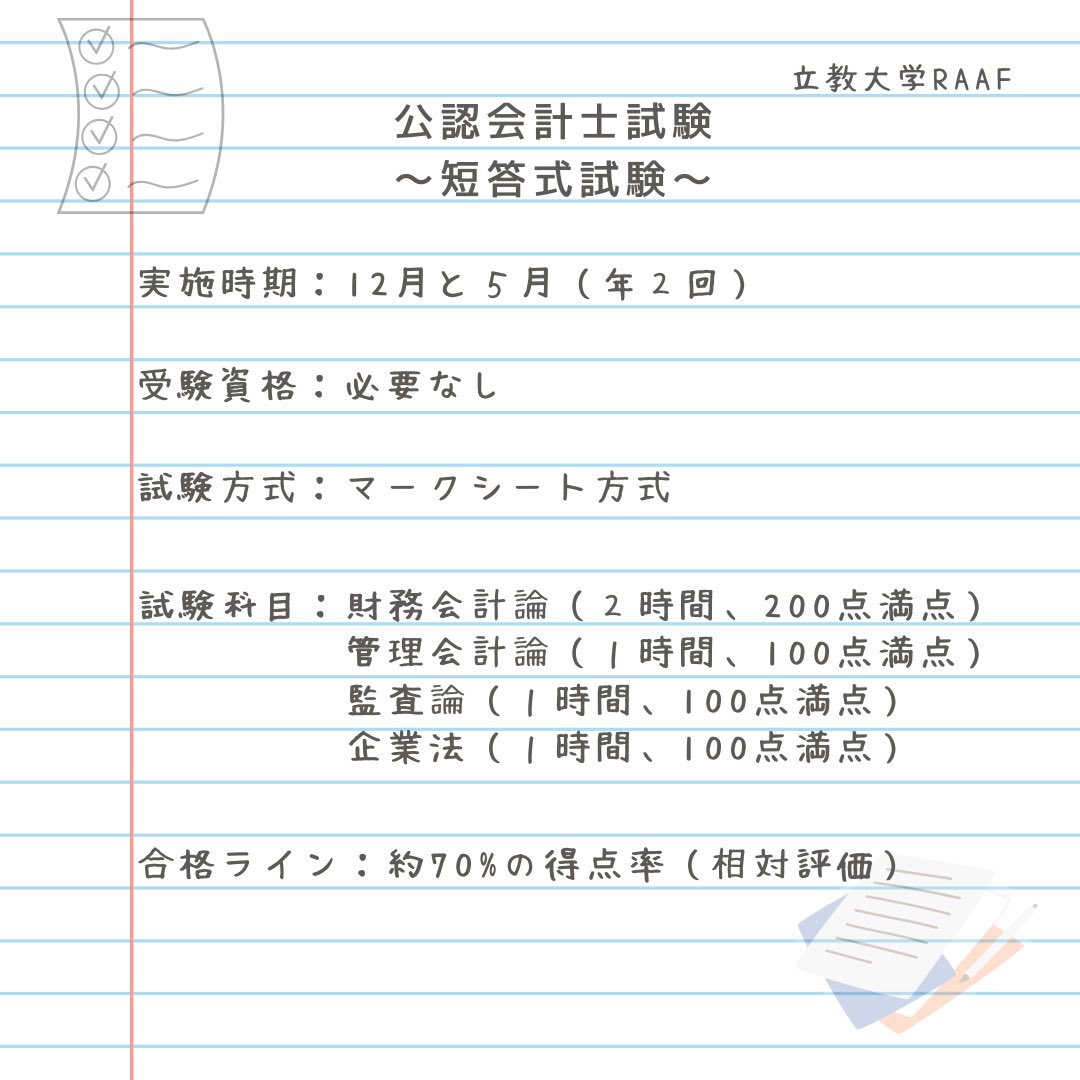 立教大学RAAF
公認会計士試験
～短答式試験～
実施時期：12月と５月（年２回）
受験資格：必要なし
試験方式：マークシート方式
試験科目：財務会計論（２時間、200点満点）
管理会計論（１時間、100点満点）
監査論（１時間、100点満点）
企業法（１時間、100点満点）
合格ライン：約70%の得点率（相対評価）